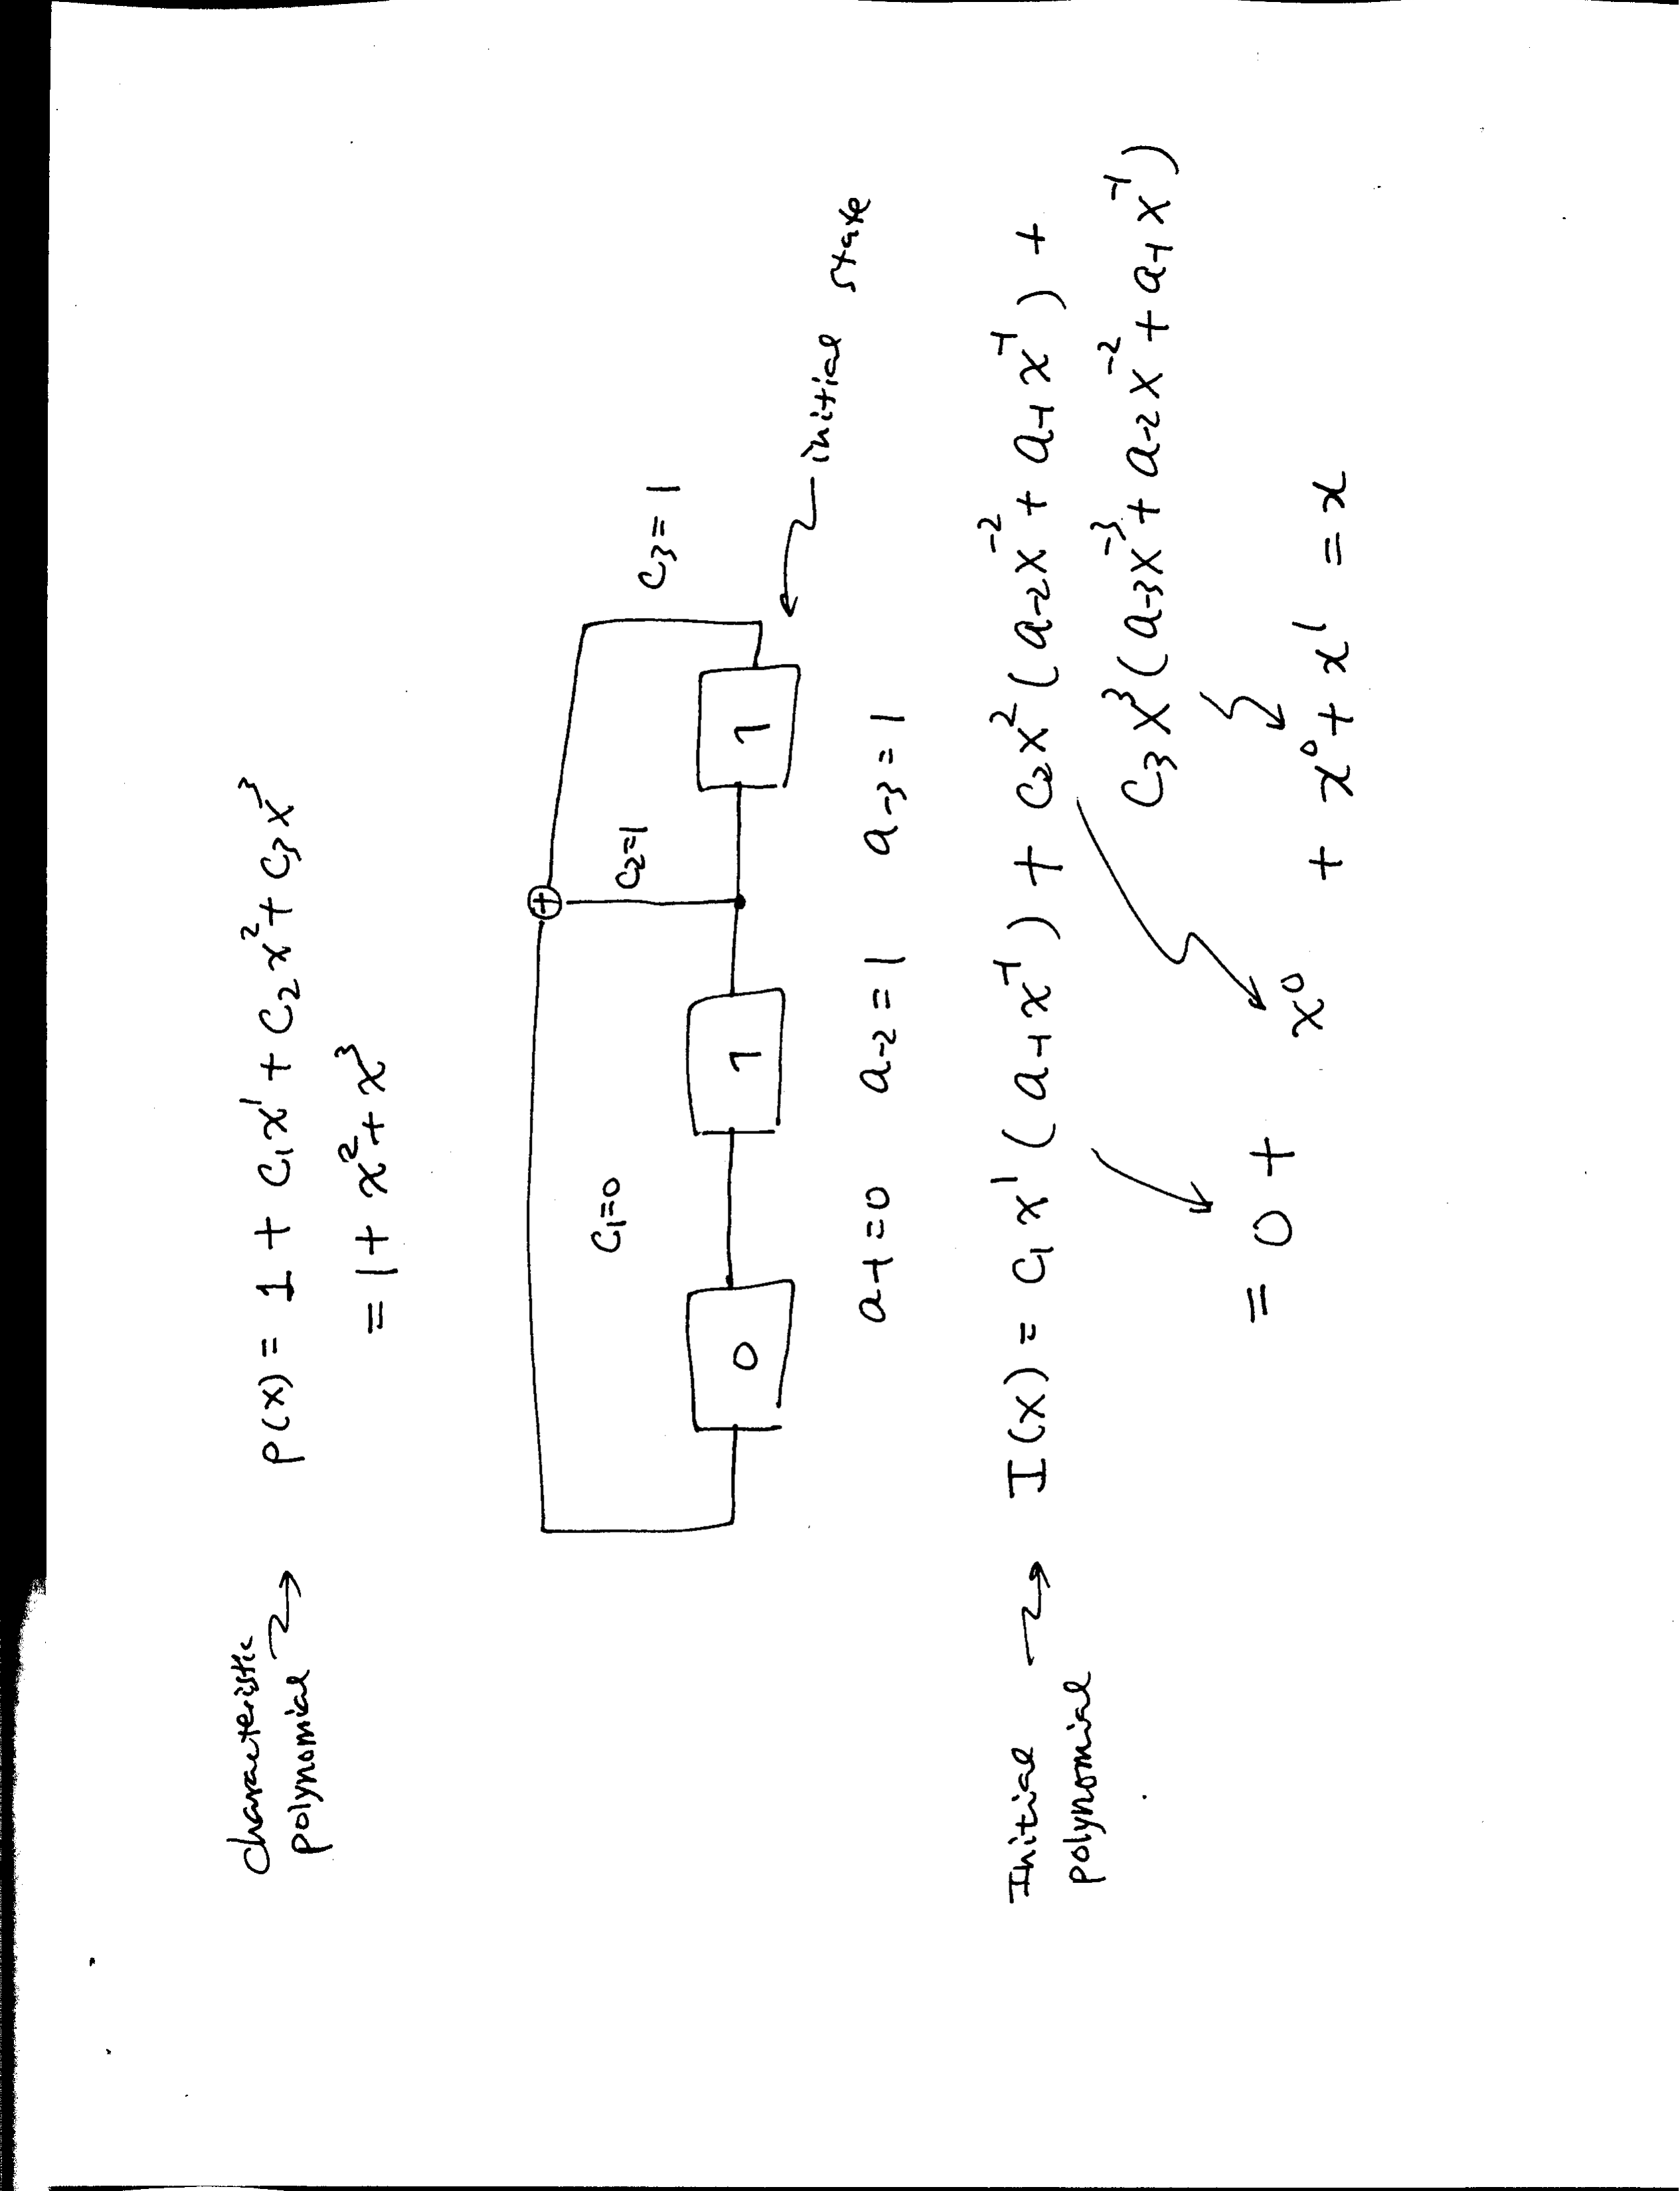 Characteristic
polynomial → P(x) = 1 + C₁x¹ + C₂x² + C₃x³
= 1 + x² + x³
⊕
C₁=0 C₂=1 C₃=1
0 1 1
initial state
a₋₁=0 a₋₂=1 a₋₃=1
Initial → I(x) = C₁x¹(a₋₁x⁻¹) + C₂x²(a₋₂x⁻² + a₋₁x⁻¹) +
polynomial
C₃x³(a₋₃x⁻³ + a₋₂x⁻² + a₋₁x⁻¹)
= 0 + x⁰ + x⁰ + x¹ = x